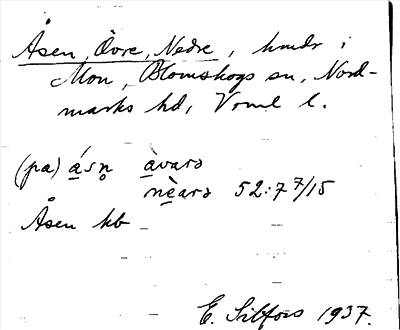 Åsen, Övre, Nedre, hmdr i
Mon, Blomskogs sn, Nord-
marks hd, Vrml l.
(pa) ásn̥ àvarə
nèarə 52:7 7/15
Åsen kb
E. Silfors 1937.